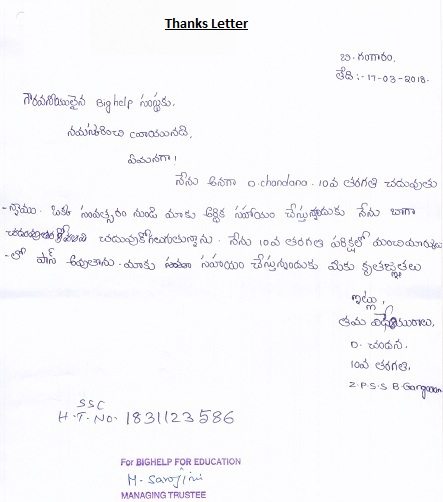 Thanks Letter
బి. గంగారం.
తేది:- 17-03-2018.
గౌరవనీయులైన Bighelp సంస్థకు.
నమస్కరించి వ్రాయునది.
ఏమనగా!
నేను అనగా D.chandana. 10వ తరగతి చదువుతు
-న్నాము. ఒక సంవత్సరం నుండి మాకు ఆర్థిక సహాయం చేస్తున్నందుకు నేను బాగా
చదువుకోగలుగుతున్నాను. నేను 10వ తరగతి పరీక్షలో మంచిమార్కుల
-లో పాస్ అవుతాను. మాకు సహాయం చేస్తున్నందుకు మీకు కృతజ్ఞతలు
ఇట్లు,
తమ విధేయురాలు,
D. చందన.
10వ తరగతి,
Z.P.S.S B.Gangaram
SSC
H.T.No- 1831123586
For BIGHELP FOR EDUCATION
M. Sarojini
MANAGING TRUSTEE